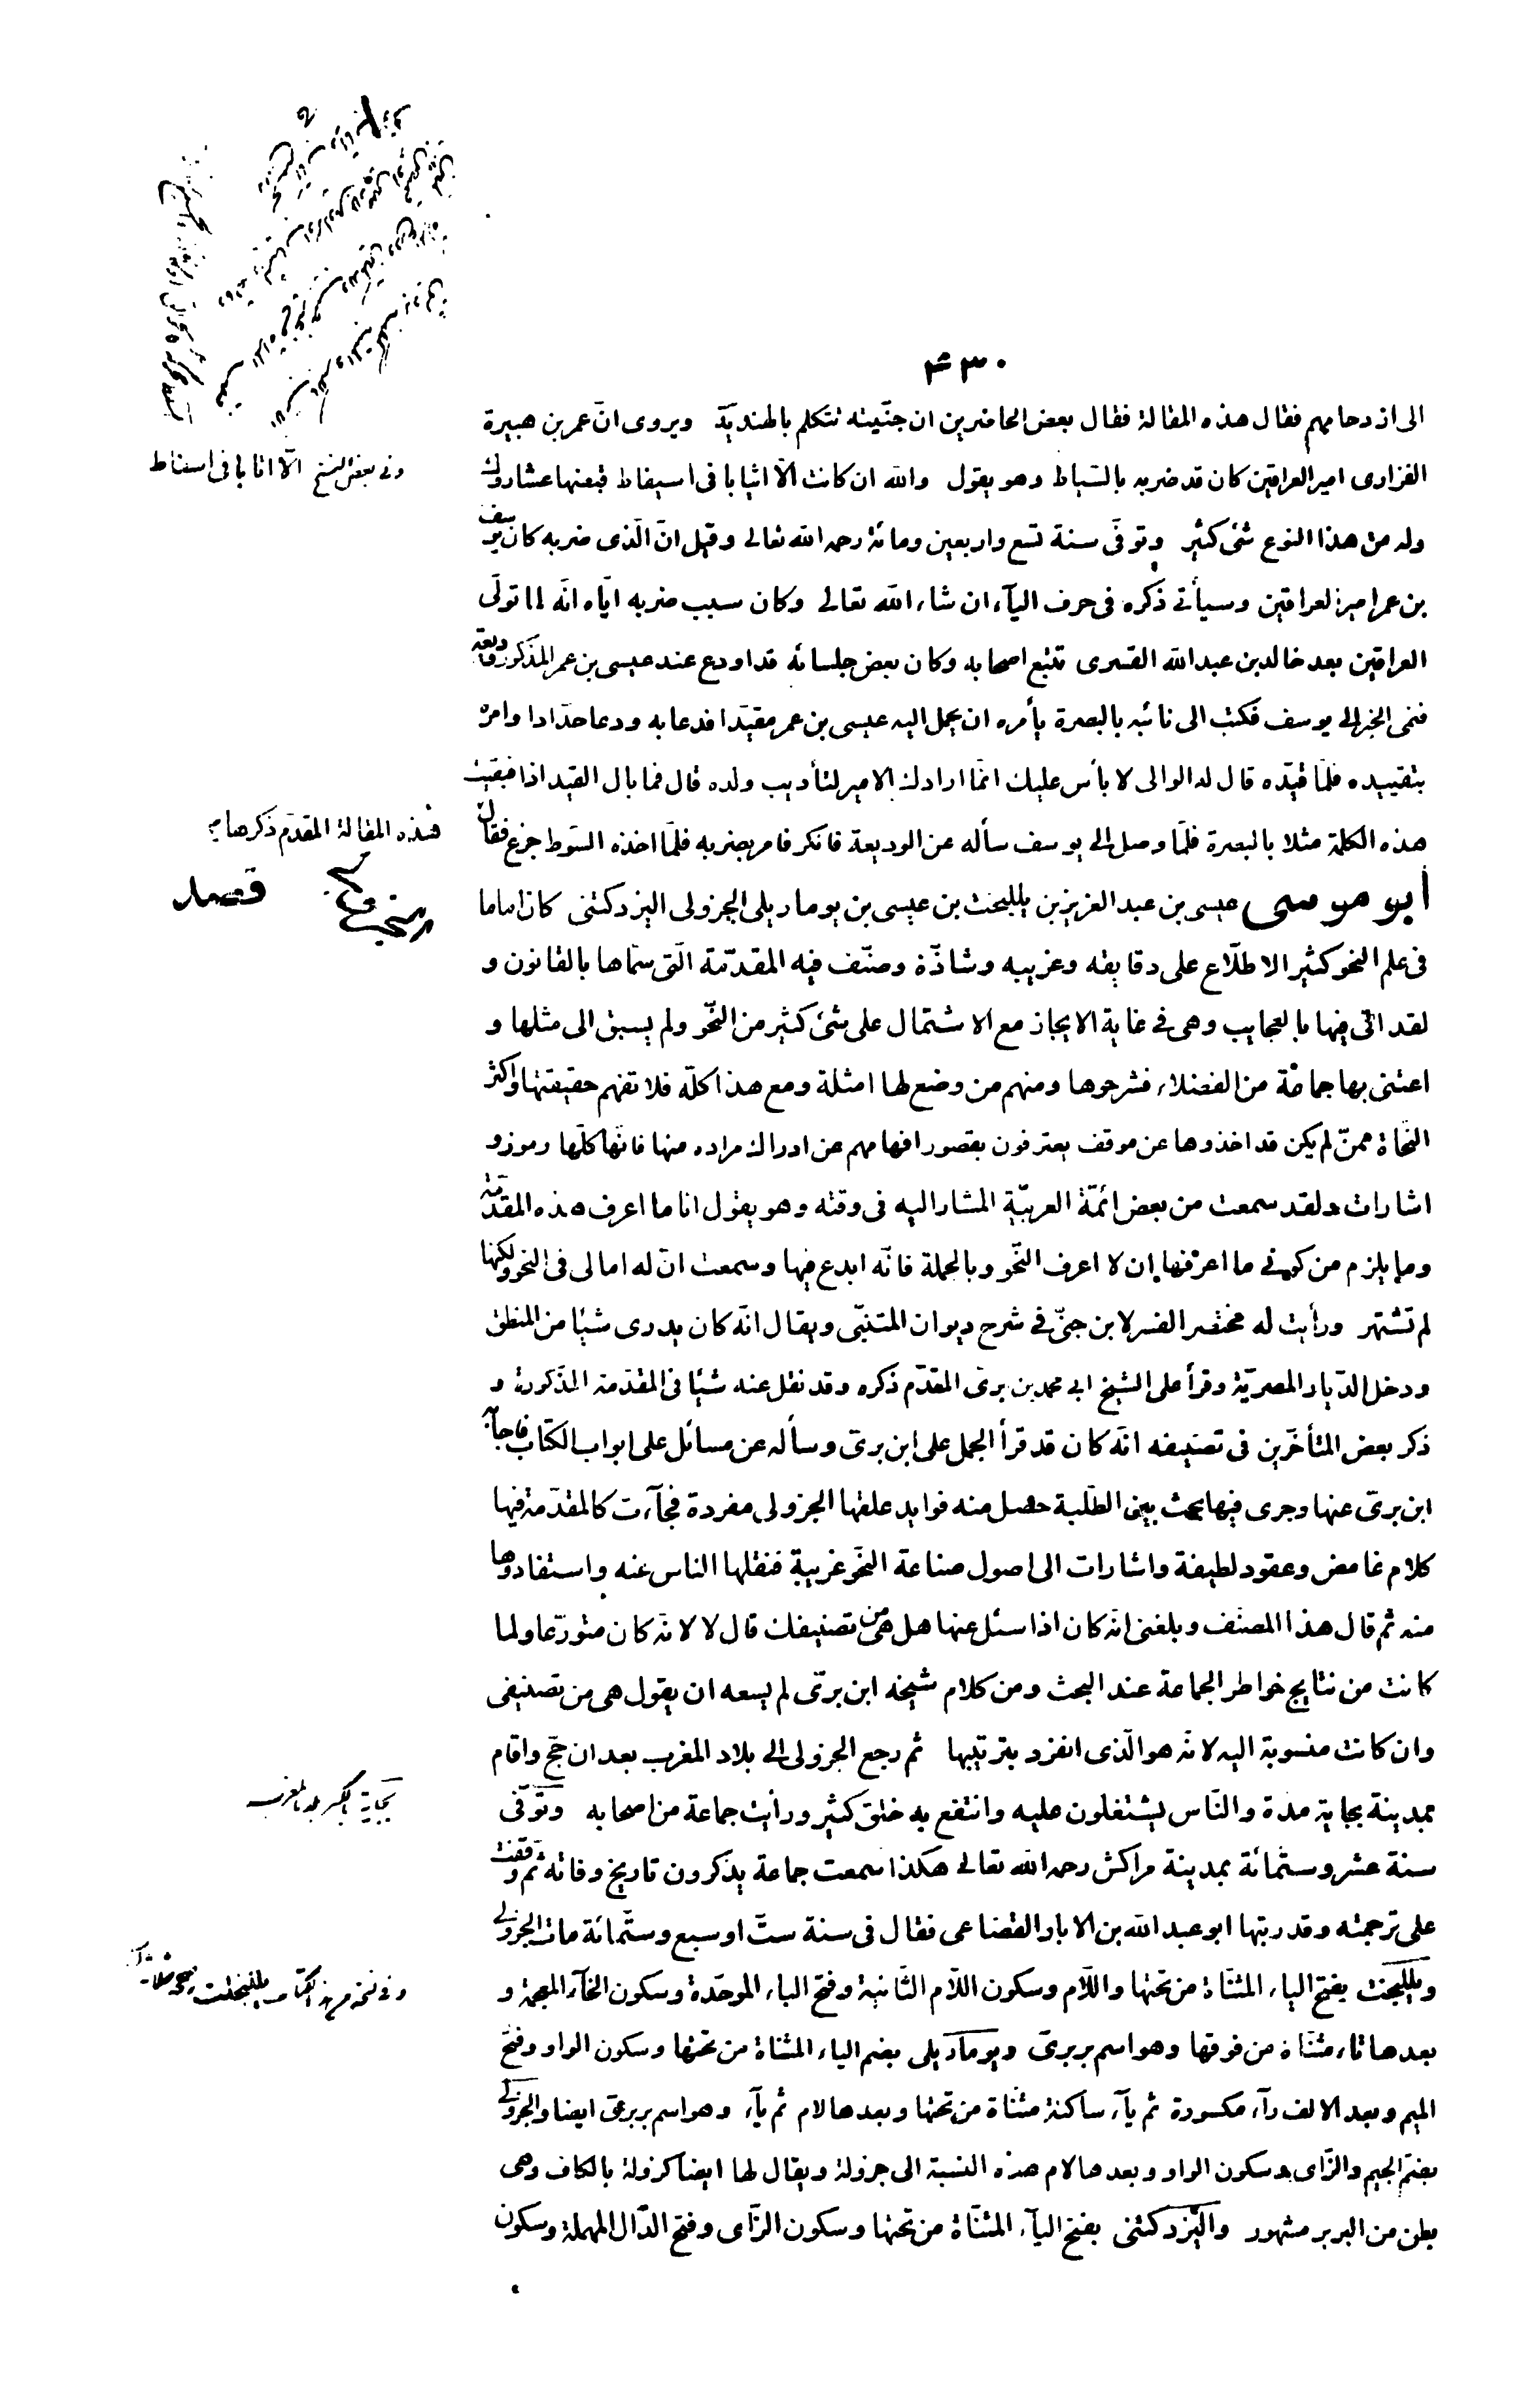 ٤٣٠
الى ازدحامهم فقال هذه المقالة فقال بعض الحاضرين ان جنّيته تتكلم بالهنديّة ويروى انّ عمر بن هبيرة
الفزارى امير العراقين كان قد ضربه بالسّياط وهو يقول والله ان كانت الّا اثيابا فى اسيفاط قبضها عشاروك
وله من هذا النوع شئ كثير وتوفّى سنة تسع واربعين ومائة رحمه الله تعالى وقيل انّ الّذى ضربه كان يوسف
بن عمر امير العراقين وسيأتى ذكره فى حرف اليآء ان شاء الله تعالى وكان سبب ضربه ايّاه انّه لما تولّى
العراقين بعد خالد بن عبد الله القسرى تتبع اصحابه وكان بعض جلسائه قد اودع عند عيسى بن عمر المذكور وديعة
فنمى الخبر الى يوسف فكتب الى نائبه بالبصرة يأمره ان يحمل اليه عيسى بن عمر مقيّدا فدعا به ودعا حدّادا وامره
بتقييده فلمّا قيّده قال له الوالى لا بأس عليك انّما ارادك الامير لتأديب ولده قال فما بال القيد اذا فبقيت
هذه الكلمة مثلا بالبصرة فلمّا وصل الى يوسف سأله عن الوديعة فانكر فامر بضربه فلمّا اخذه السّوط جزع فقال
أبو موسى عيسى بن عبد العزيز بن يللبخت بن عيسى بن يوماريلى الجزولى اليزدكتنى كان اماما
فى علم النحو كثير الاطلّاع على دقايقه وغريبه وشاذّة وصنّف فيه المقدّمة الّتى سمّاها بالقانون و
لقد اتى فيها بالعجايب وهى فى غاية الايجاز مع الاشتمال على شئ كثير من النّحو ولم يسبق الى مثلها و
اعتنى بها جماعة من الفضلاء فشرحوها ومنهم من وضع لها امثلة ومع هذا كلّه فلا تفهم حقيقتها واكثر
النحّاة ممنّ لم يكن قد اخذوها عن موقف يعترفون بقصور افهامهم عن ادراك مراده منها فانّها كلّها رموز و
اشارات ولقد سمعت من بعض ائمّة العربيّة المشار اليه فى وقته وهو يقول انا ما اعرف هذه المقدّمة
وما يلزم من كونى ما اعرفها ان لا اعرف النّحو وبالجملة فانّه ابدع فيها وسمعت انّ له امالى فى النحو ولكنها
لم تشتهر ورأيت له مختصر الفسر لابن جنّى فى شرح ديوان المتنبّى ويقال انّه كان يدرى شيئا من المنطق
ودخل الدّيار المصريّة وقرأ على الشيخ ابى محمد بن برىّ المقدّم ذكره وقد نقل عنه شيئا فى المقدّمة المذكورة و
ذكر بعض المتأخّرين فى تصنيفه انّه كان قد قرأ الجمل على ابن برىّ وسأله عن مسائل على ابواب الكتاب فاجابه
ابن برىّ عنها وجرى فيها بحث بين الطلّبة حصل منه فوايد علقها الجزولى مفردة فجآءت كالمقدّمة فيها
كلام غامض وعقود لطيفة واشارات الى اصول صناعة النحو غريبة فنقلها الناس عنه واستفادوها
منه ثم قال هذا المصنّف وبلغنى انّه كان اذا سئل عنها هل هى من تصنيفك قال لا لانّه كان متورّعا ولما
كانت من نتايج خواطر الجماعة عند البحث ومن كلام شيخه ابن برىّ لم يسعه ان يقول هى من تصنيفى
وان كانت منسوبة اليه لانّه هو الّذى انفرد بترتيبها ثم رجع الجزولى الى بلاد المغرب بعد ان حجّ واقام
بمدينة بجاية مدّة والنّاس يشتغلون عليه وانتفع به خلق كثير ورأيت جماعة من اصحابه وتوفّى
سنة عشر وستّمائة بمدينة مراكش رحمه الله تعالى هكذا سمعت جماعة يذكرون تاريخ وفاته ثم وقفت
على ترجمته وقد رتبها ابو عبد الله بن الابار القضاعى فقال فى سنة ستّ او سبع وستّمائة مات الجزولى
ويللبخت بفتح الياء المثنّاة من تحتها واللّام وسكون اللّام الثّانية وفتح الباء الموحّدة وسكون الخآء المعجمة و
بعدها تاء مثنّاة من فوقها وهو اسم بربرىّ ويوماريلى بضم الياء المثناة من تحتها وسكون الواو وفتح
الميم وبعد الالف رآء مكسورة ثم يآء ساكنة مثنّاة من تحتها وبعدها لام ثم يآء وهو اسم بربرىّ ايضا والجزولى
بضمّ الجيم والزّاى وسكون الواو وبعدها لام هذه النسبة الى جزولة ويقال لها ايضا كزولة بالكاف وهى
بطن من البربر مشهور واليزدكتنى بفتح اليآء المثنّاة من تحتها وسكون الزّاى وفتح الدّال المهملة وسكون
وفى بعض النسخ الّا اثابا فى اسفاط
هذه المقالة المقدّم ذكرها
بجاية بالكسر بلد بالمغرب